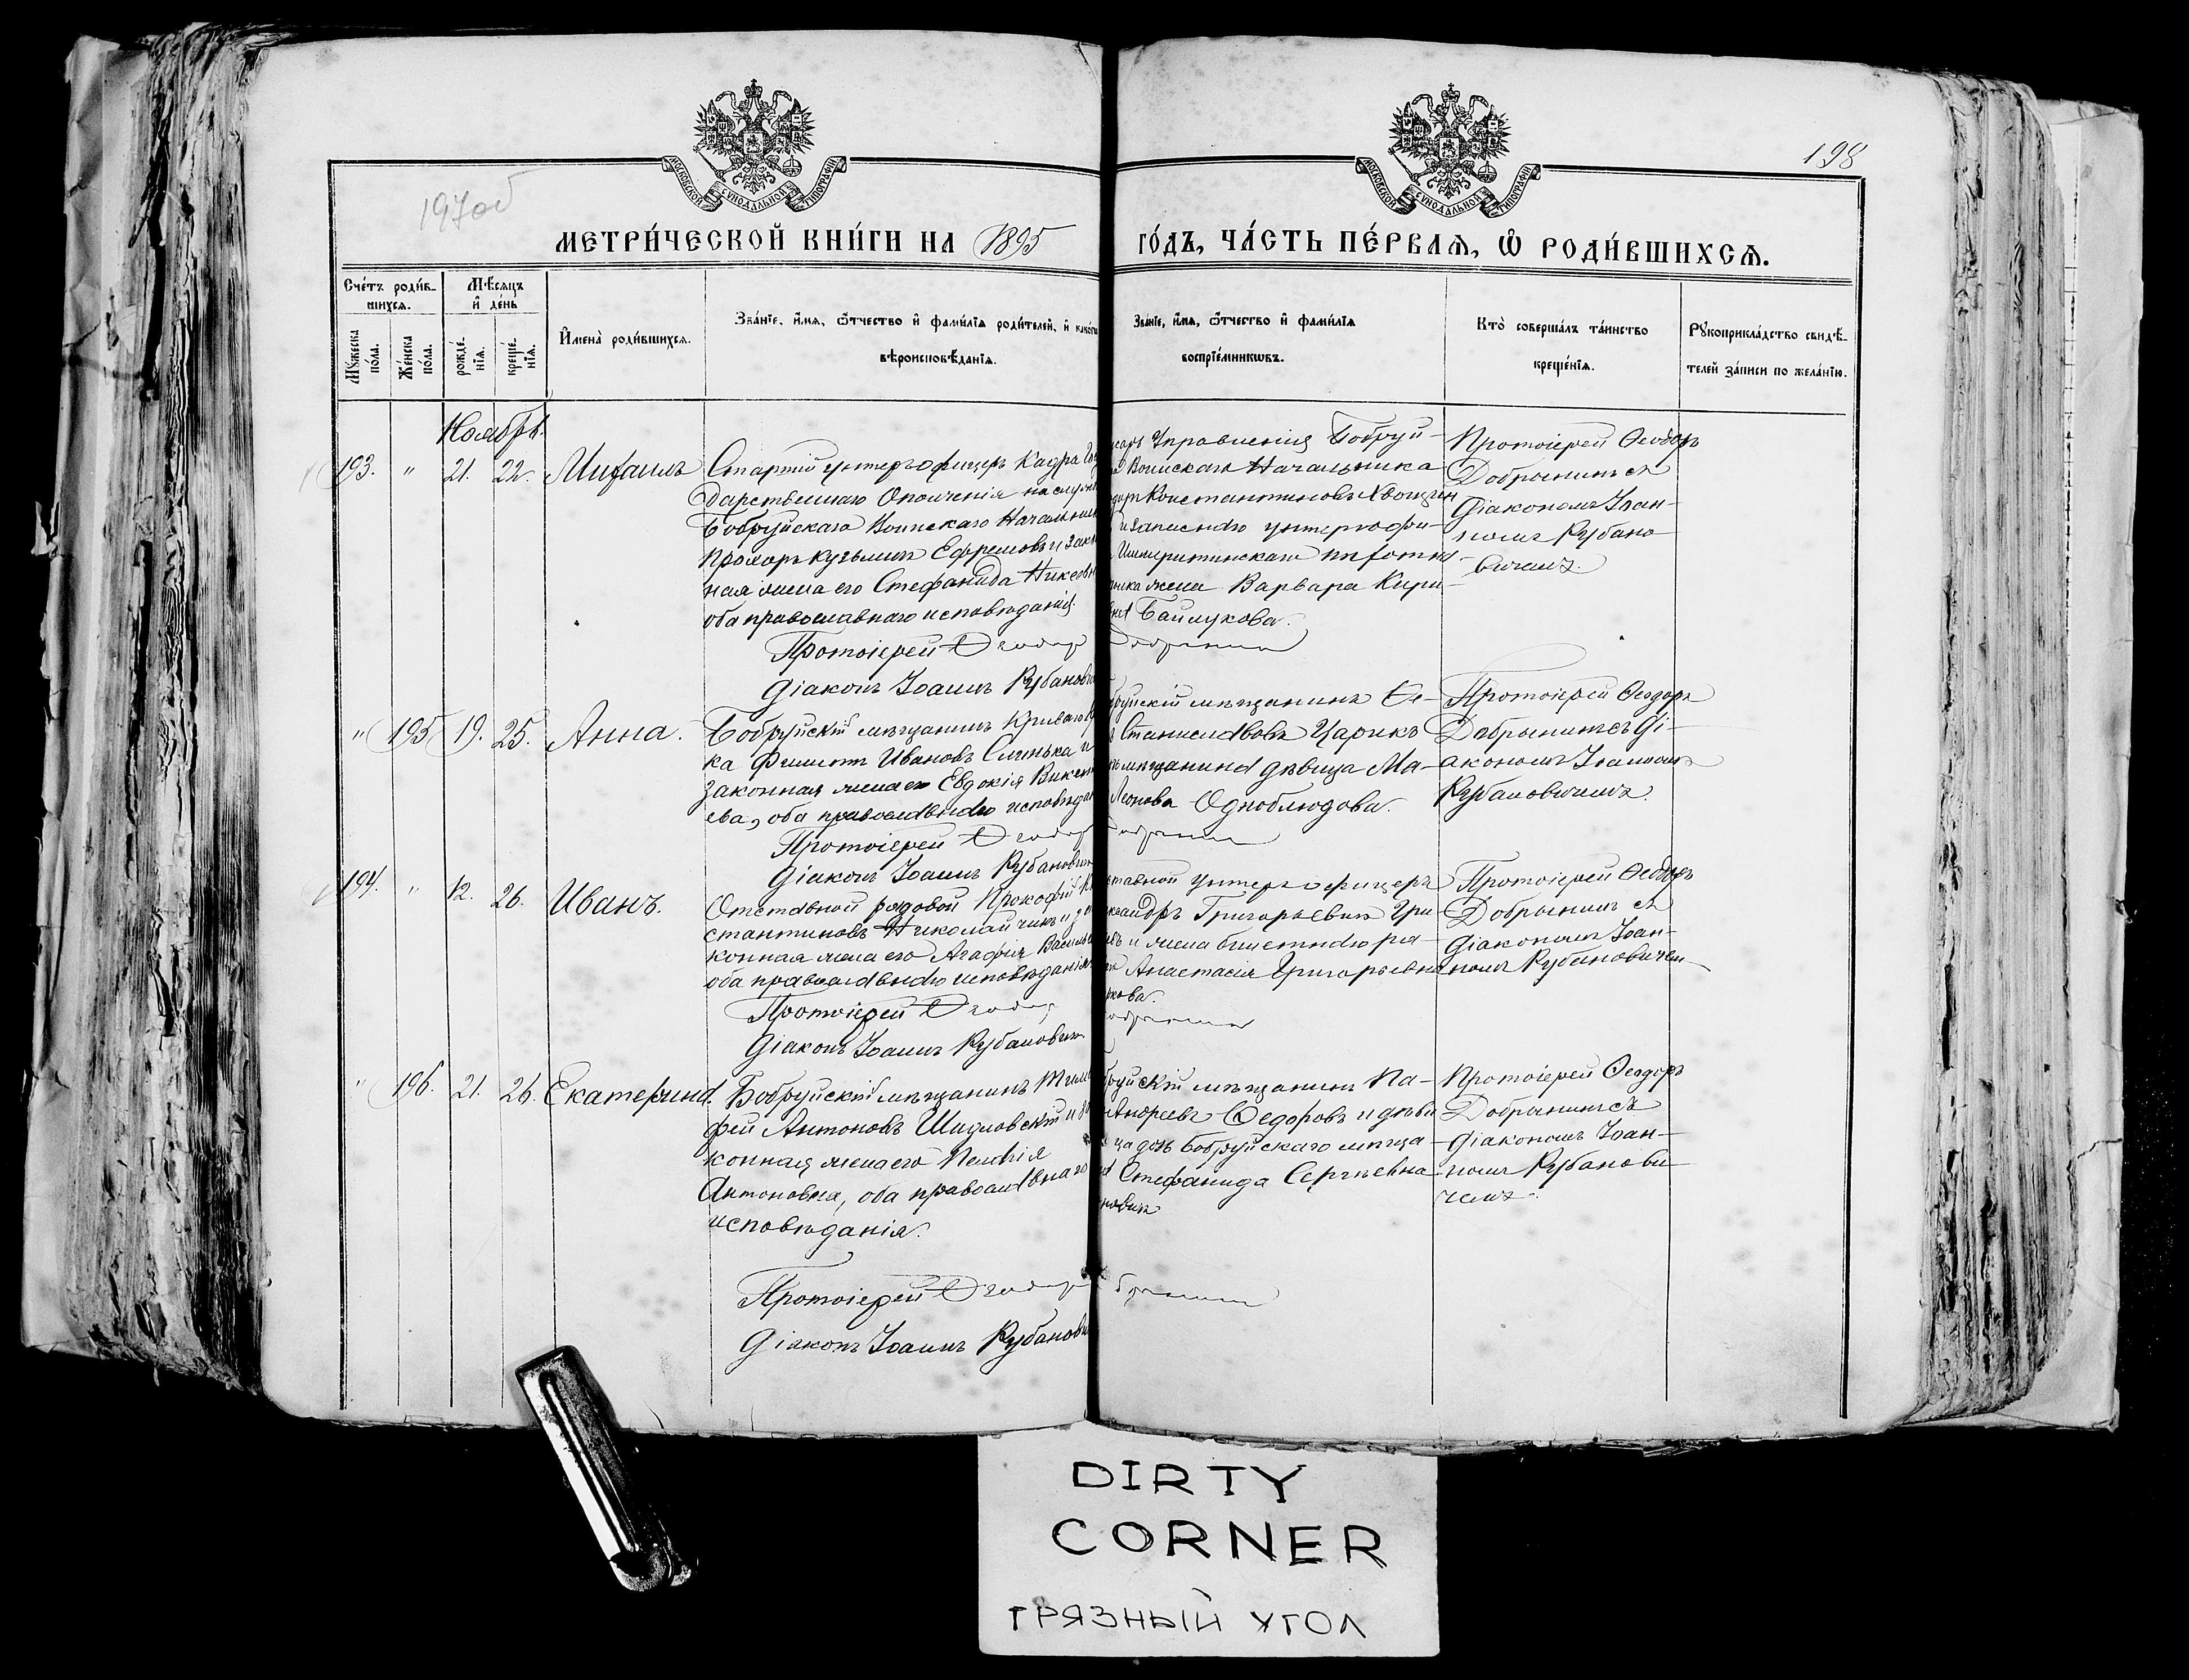 197об
198
МОСКОВСКОЙ СУНОДАЛЬНОЙ ТИПОГРАФІИ
МОСКОВСКОЙ СУНОДАЛЬНОЙ ТИПОГРАФІИ
МЕТРИ́ЧЕСКОЙ КНИ́ГИ НА 1895 ГО́ДЪ, ЧА́СТЬ ПЕ́РВАѦ, Ѡ РОДИ́ВШИХСѦ.
Сче́тъ роди́в-
шихсѧ.
Мѣ́сѧцъ
и҆ де́нь
Мꙋ́жеска
по́ла.
Же́нска
по́ла.
рожде́-
нїѧ.
креще́-
нїѧ.
И҆мена̀ роди́вшихсѧ.
Зва́нїе, и҆́мѧ, ѻ҆́тчество и҆ фами́лїѧ роди́телей, и҆ како́гѡ
вѣроисповѣ́данїѧ.
Зва́нїе, и҆́мѧ, ѻ҆́тчество и҆ фами́лїѧ
воспрїе́мникѡвъ.
Кто̀ соверша́лъ та́инство
креще́нїѧ.
Рꙋкоприкла́дство свидѣ́-
телей за́писи по жела́нїю.
Ноябрь.
193. " 21. 22. Михаилъ
Старшій унтеръ офицеръ Кадра Го
дарственнаго Ополченія на служ
Бобруйскаго Воинскаго Начальник
Прохоръ Кузьминъ Ефремовъ и зак
ная жена его Стефанида
оба православнаго исповѣданія.
Протоіерей Ѳеодор
Діаконъ Іоаннъ Рубанови
Управленія Бобруй-
Воинскаго Начальника
Константиновъ
и запаснаго унтеръ офи-
пѣхотна-
жена Варвара Кири-
Баймукова.
Протоіерей Ѳеодоръ
Добрынинъ съ
Діакономъ Іоан-
номъ Рубано-
вичемъ.
" 195 19. 25. Анна.
Бобруйскій мѣщанинъ
ка Филиппъ Ивановъ и
Законная жена его Евдокія Викен
ева, оба православнаго исповѣдан
Протоіерей Ѳеодор
Діаконъ Іоаннъ Рубанович
бруйскій мѣщанинъ
Станиславовъ Царикъ
мѣщанина дѣвица Ма-
Леонова Одноблюдова.
Протоіерей Ѳеодоръ
Добрынинъ съ Ді-
акономъ Іоанномъ
Рубановичемъ.
194. " 12. 26. Иванъ.
Отставной рядовой Прокофій Ко
стантиновъ Николайчикъ и за
конная жена его Агафія Василь
оба православнаго исповѣданія
Протоіерей Ѳеодор
Діаконъ Іоаннъ Рубановичъ
ставной унтеръ офицеръ
ксандръ Григорьевичъ Гри
въ и жена билетнаго ря-
Анастасія Григорьевна
кова.
Протоіерей Ѳеодоръ
Добрынинъ съ
Діакономъ Іоан-
номъ Рубановичем
" 196. 21. 26. Екатерина.
Бобруйскій мѣщанинъ Тимо
фей Антоновъ Шидловскій и за
конная жена его
Антоновна, оба православнаго
исповѣданія.
Протоіерей Ѳеодор
Діаконъ Іоаннъ Рубанови
бруйскій мѣщанинъ Па-
Андреевъ Ѳедоровъ и дѣви
ца дочь Бобруйскаго мѣща
Стефанида Сергѣевна
новичъ
Протоіерей Ѳеодоръ
Добрынинъ съ
Діакономъ Іоан-
номъ Рубанови-
чемъ.
DIRTY
CORNER
ГРЯЗНЫЙ УГОЛ